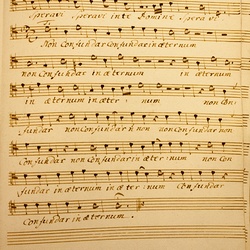 Speravi Speravi in te Domine Speravi
Non Confundar Confundar in æternum
non Confundar in æternum in æternum
in æternum in æter: num non Con:
fundar non Confundar non non Confundar non
Confundar non Confundar in æter: num non Con
fundar in æternum in æter: num Confundar
Confundar in æternum.